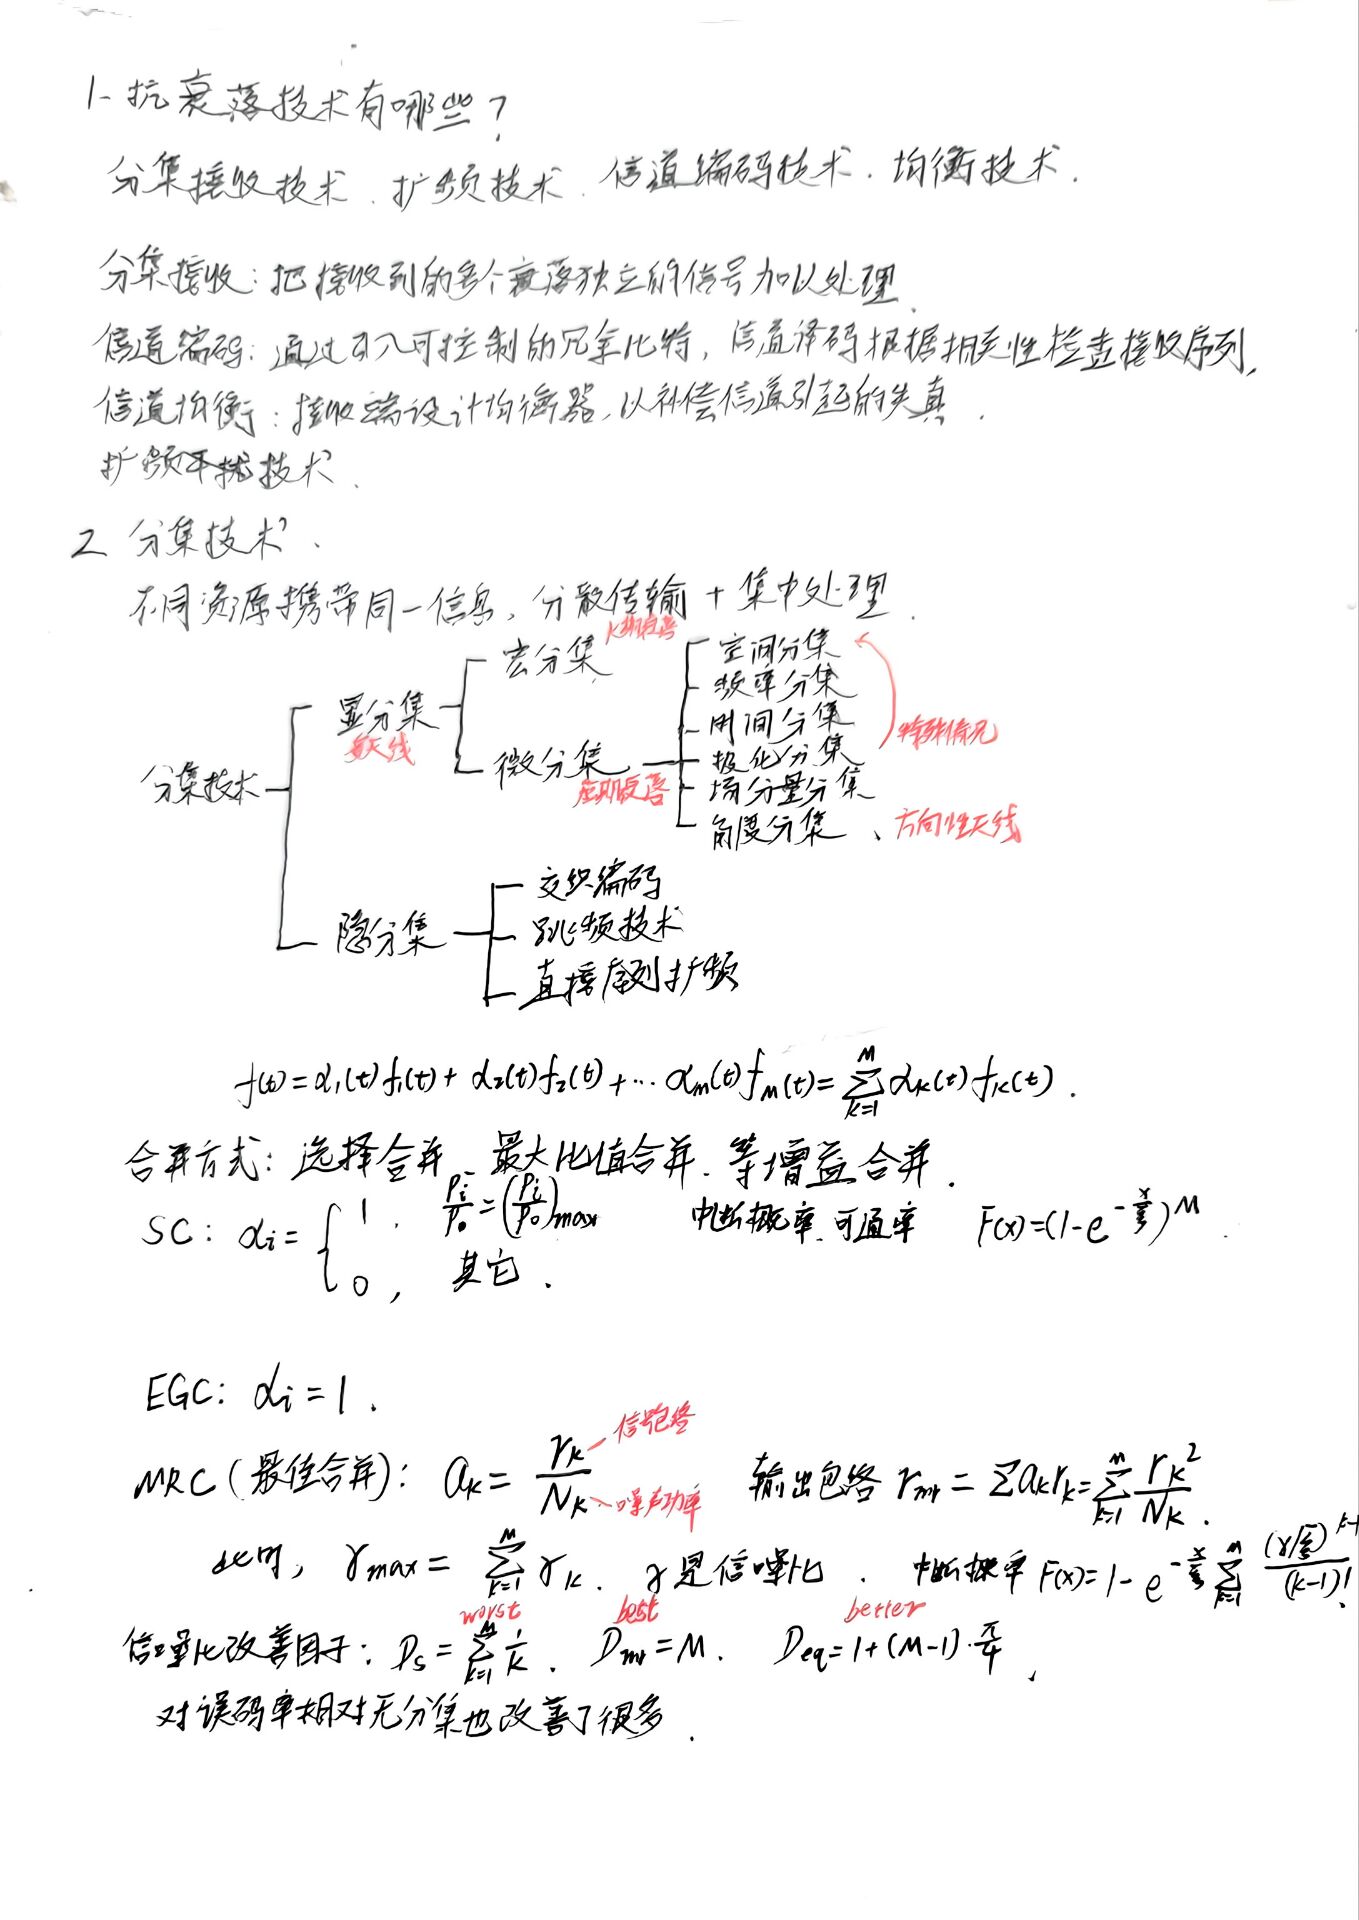 1. 抗衰落技术有哪些？
分集接收技术、扩频技术、信道编码技术、均衡技术.
分集接收：把接收到的多个衰落独立的信号加以处理.
信道编码：通过引入可控制的冗余比特，信道译码根据相关性检查接收序列.
信道均衡：接收端设计均衡器，以补偿信道引起的失真.
扩频技术.
2 分集技术.
不同资源携带同一信息，分散传输+集中处理.
分集技术
显分集
多天线
宏分集
长期改善
微分集
短期改善
空间分集
频率分集
时间分集
极化分集
特殊情况
场分量分集
角度分集、方向性天线
隐分集
交织编码
跳频技术
直接序列扩频
f(t)=α₁(t)f₁(t)+α₂(t)f₂(t)+…αm(t)fM(t)=∑_{k=1}^{M}αk(t)fk(t).
合并方式：选择合并、最大比值合并、等增益合并.
SC: αi={1, Pi/P0=(Pi/P0)max 中断概率、可通率 F(x)=(1-e^{-x/ξ̄})^M
0, 其它.
EGC: αi=1.
MRC(最佳合并): ak=rk/Nk 信号包络 噪声功率 输出包络 rmr=∑akrk=∑_{k=1}^{M} rk²/Nk.
此时，γmax=∑_{k=1}^{M}γk. γ是信噪比. 中断概率 F(x)=1-e^{-x/ξ̄}∑_{k=1}^{M} (γ/ξ̄)^{k-1}/(k-1)!
worst best better
信噪比改善因子：Ds=∑_{k=1}^{M} 1/k. Dmr=M. Deq=1+(M-1)·π/4,
对误码率相对无分集也改善了很多.